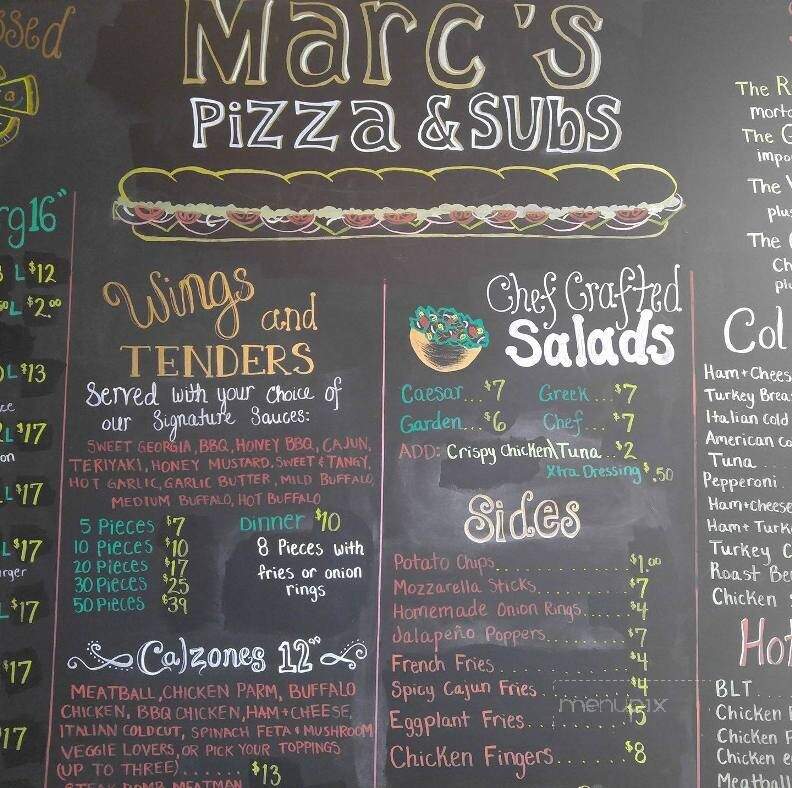 Marc's
Pizza & Subs
16"
L $12
L $2.00
L $13
L $17
L $17
L $17
L $17
$17
Wings and
TENDERS
Served with your choice of
our Signature Sauces:
SWEET GEORGIA, BBQ, HONEY BBQ, CAJUN,
TERIYAKI, HONEY MUSTARD, SWEET & TANGY,
HOT GARLIC, GARLIC BUTTER, MILD BUFFALO,
MEDIUM BUFFALO, HOT BUFFALO
5 Pieces $7
10 Pieces $10
20 Pieces $17
30 Pieces $25
50 Pieces $39
Dinner $10
8 Pieces with
fries or onion
rings
Calzones 12"
MEATBALL, CHICKEN PARM, BUFFALO
CHICKEN, BBQ CHICKEN, HAM+CHEESE,
ITALIAN COLDCUT, SPINACH FETA & MUSHROOM
VEGGIE LOVERS, OR PICK YOUR TOPPINGS
(UP TO THREE)...... $13
STEAK BOMB, MEATMAN
Chef Crafted
Salads
Caesar...$7 Greek...$7
Garden...$6 Chef...$7
ADD: Crispy Chicken\Tuna..$2
Xtra Dressing $.50
Sides
Potato Chips $1.00
Mozzarella Sticks $7
Homemade Onion Rings $4
Jalapeño Poppers $7
French Fries $4
Spicy Cajun Fries $4
Eggplant Fries $5
Chicken Fingers $8
menupix
The
The
The
The
Ham+Chees
Turkey Brea
Italian Cold
American Co
Tuna
Pepperoni
Ham+cheese
Ham+ Turk
Turkey C
Roast Be
Chicken
BLT
Chicken
Chicken
Chicken
Meatball